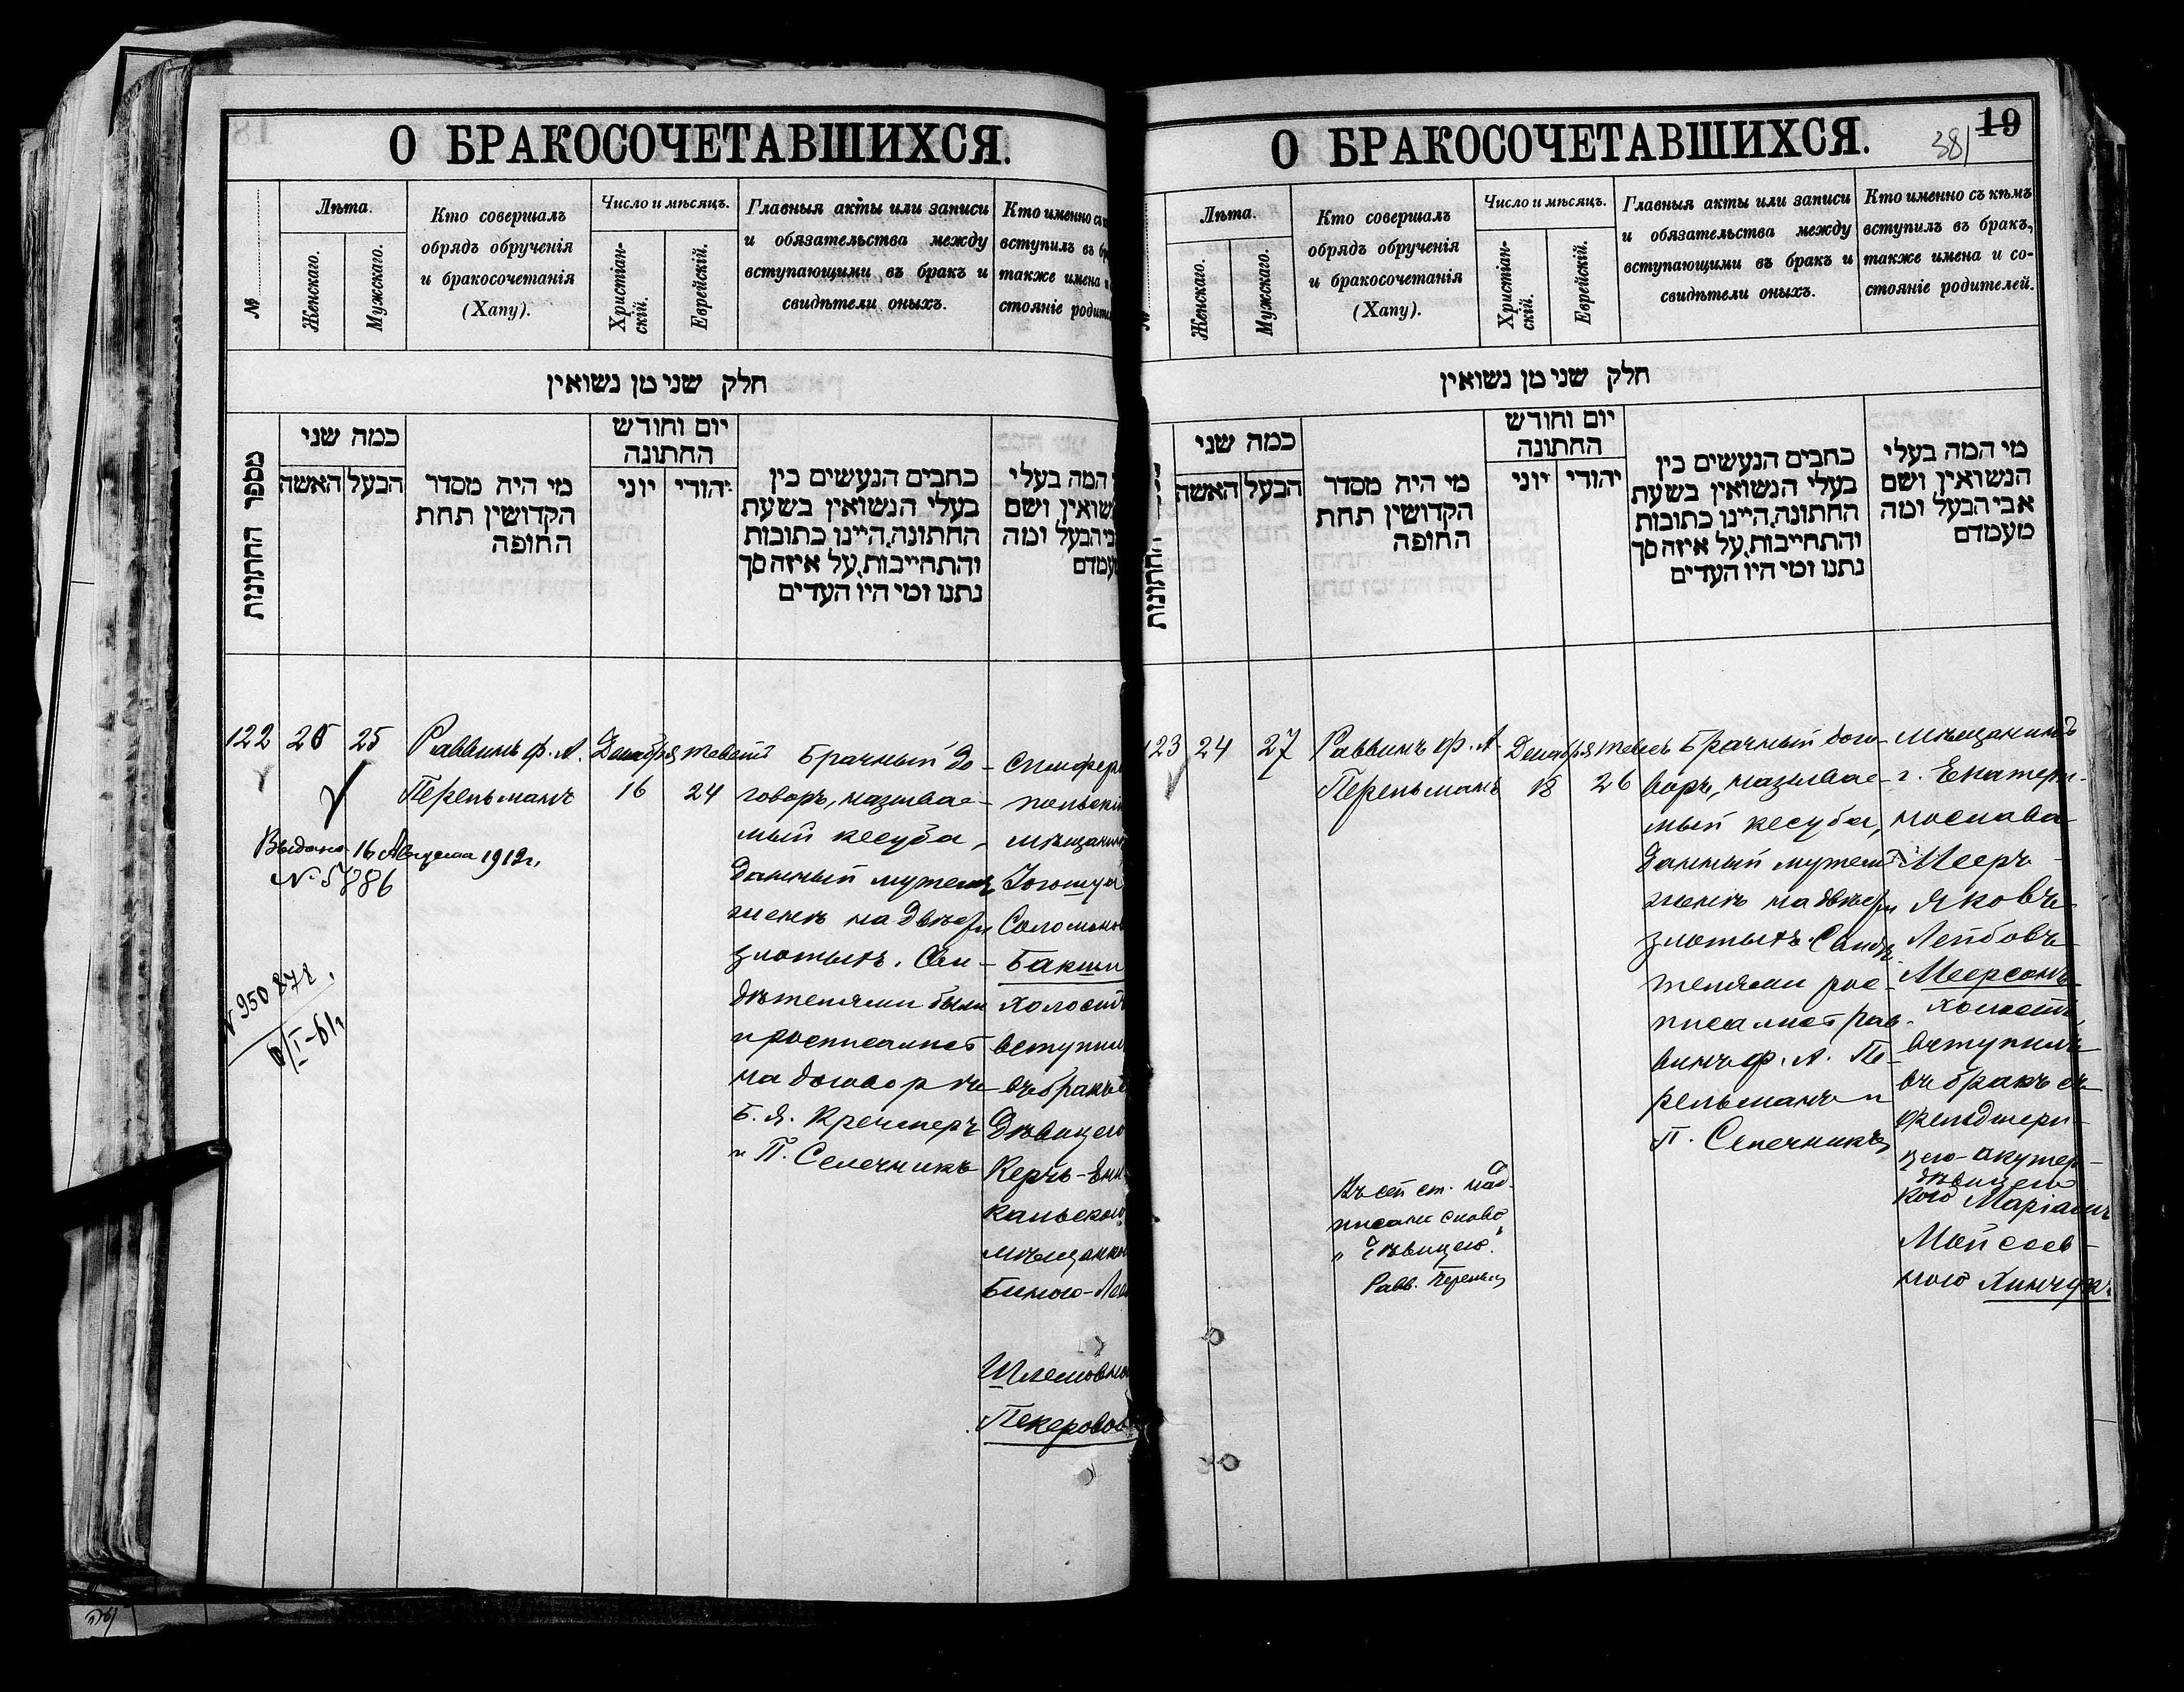 О БРАКОСОЧЕТАВШИХСЯ.
№
Лѣта.
Женскаго.
Мужскаго.
Кто совершалъ
обрядъ обрученія
и бракосочетанія
(Хапу).
Число и мѣсяцъ.
Христіан-
скій.
Еврейскій.
Главныя акты или записи
и обязательства между
вступающими въ бракъ и
свидѣтели оныхъ.
Кто именно съ
вступилъ въ б
также имена и
стояніе родите
חלק שני מן נשואין
מספר החתונות
כמה שני
האשה
הבעל
מי היה מסדר
הקדושין תחת
החופה
יום וחודש
החתונה
יוני
יהודי
כתבים הנעשים בין
בעלי הנשואין בשעת
החתונה, היינו כתובות
והתחייבות, על איזה סך
נתנו ומי היו העדים
המה בעלי
שואין ושם
בי הבעל ומה
עמדם
122
25
25
Раввинъ Ф. А.
Перельманъ
Декабря
16
Тевейтъ
24
Брачный до-
говоръ, называе-
мый кесуба,
данный мужемъ
женѣ на двѣсти
злотыхъ. Сви-
дѣтелями были
и росписались
на договорѣ
Б. Я. Крейнеръ
и П. Селечникъ
Симферо
польскій
мѣщанинъ
Іогошуа
Соломонов
Бакши
холостъ
вступил
въ бракъ с
дѣвицею
Керчь-Ени
кальскою
мѣщанкою
Биною-Леею
Шлемовною
Пекеровой
Выдано 16 Августа 1912 г.
№ 57286
№ 950 871.
6/I-61г
О БРАКОСОЧЕТАВШИХСЯ.
38
19
№
Лѣта.
Женскаго.
Мужскаго.
Кто совершалъ
обрядъ обрученія
и бракосочетанія
(Хапу).
Число и мѣсяцъ.
Христіан-
скій.
Еврейскій.
Главныя акты или записи
и обязательства между
вступающими въ бракъ и
свидѣтели оныхъ.
Кто именно съ кѣмъ
вступилъ въ бракъ,
также имена и со-
стояніе родителей.
חלק שני מן נשואין
החתונות
כמה שני
האשה
הבעל
מי היה מסדר
הקדושין תחת
החופה
יום וחודש
החתונה
יוני
יהודי
כתבים הנעשים בין
בעלי הנשואין בשעת
החתונה, היינו כתובות
והתחייבות, על איזה סך
נתנו ומי היו העדים
מי המה בעלי
הנשואין ושם
אבי הבעל ומה
מעמדם
123
24
27
Раввинъ Ф. А.
Перельманъ
Декабря
18
Тевесъ
26
Брачный дого-
воръ, называе-
мый кесуба,
данный мужемъ
женѣ на двѣсти
злотыхъ. Свидѣ
телями рос-
писались рав-
винъ Ф. А. Пе-
рельманъ и
П. Селечникъ
Мѣщанинъ
г. Екатери-
нослава
Мееръ
Яковъ
Лейбовъ
Меерсонъ
холостъ,
вступилъ
въ бракъ съ
фельдшери-
цею-акушер-
дѣвицею
кою Маріамъ
Мойсеев-
ною Хинчукъ.
Къ сей ст. над-
писано слово
„дѣвицею".
Равв. Перельм